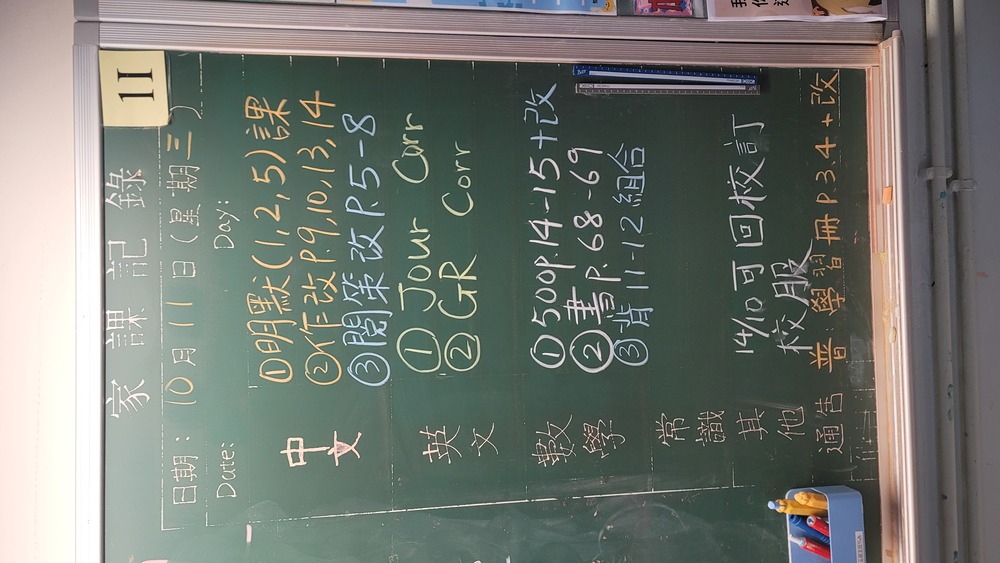 11
家課記錄
日期: 10月11日(星期三)
Date: Day:
中文
①明默(1,2,5)課
②作改P.9,10,13,14
③閱策改P.5-8
英文
① Jour Corr
② GR Corr
數學
①500P.14-15+改
②書P.68-69
③背11-12組合
常識
其他
14/10可回校訂
校服
通告
普:學習冊P.3.4+改